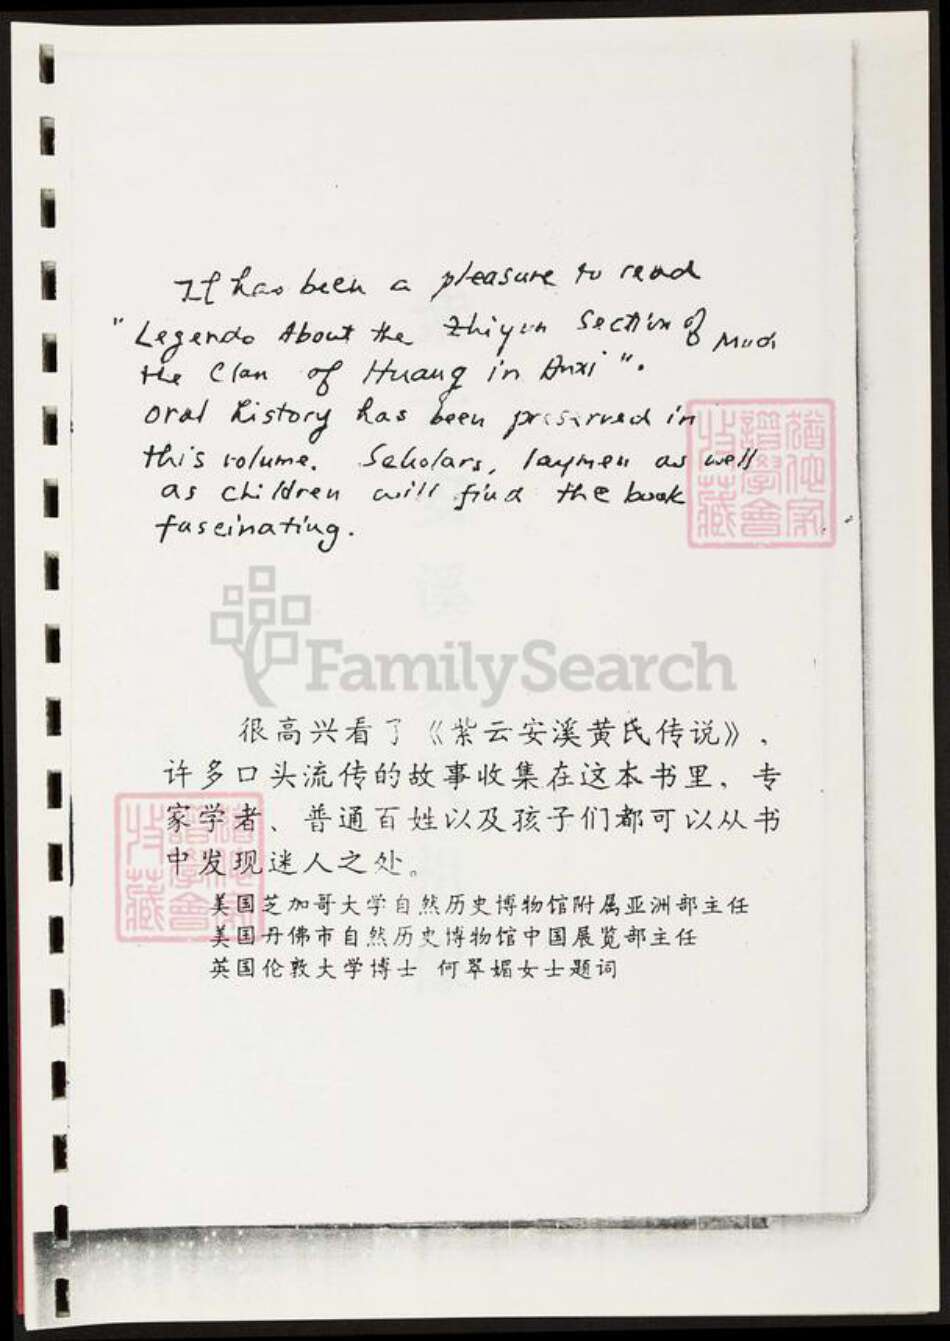 It has been a pleasure to read
"Legends About the Zhiyun Section of
the Clan of Huang in Anxi". Much
oral history has been preserved in
this volume. Scholars, laymen as well
as children will find the book
fascinating.
FamilySearch
很高兴看了《紫云安溪黄氏传说》，
许多口头流传的故事收集在这本书里，专
家学者、普通百姓以及孩子们都可以从书
中发现迷人之处。
美国芝加哥大学自然历史博物馆附属亚洲部主任
美国丹佛市自然历史博物馆中国展览部主任
英国伦敦大学博士 何翠媚女士题词